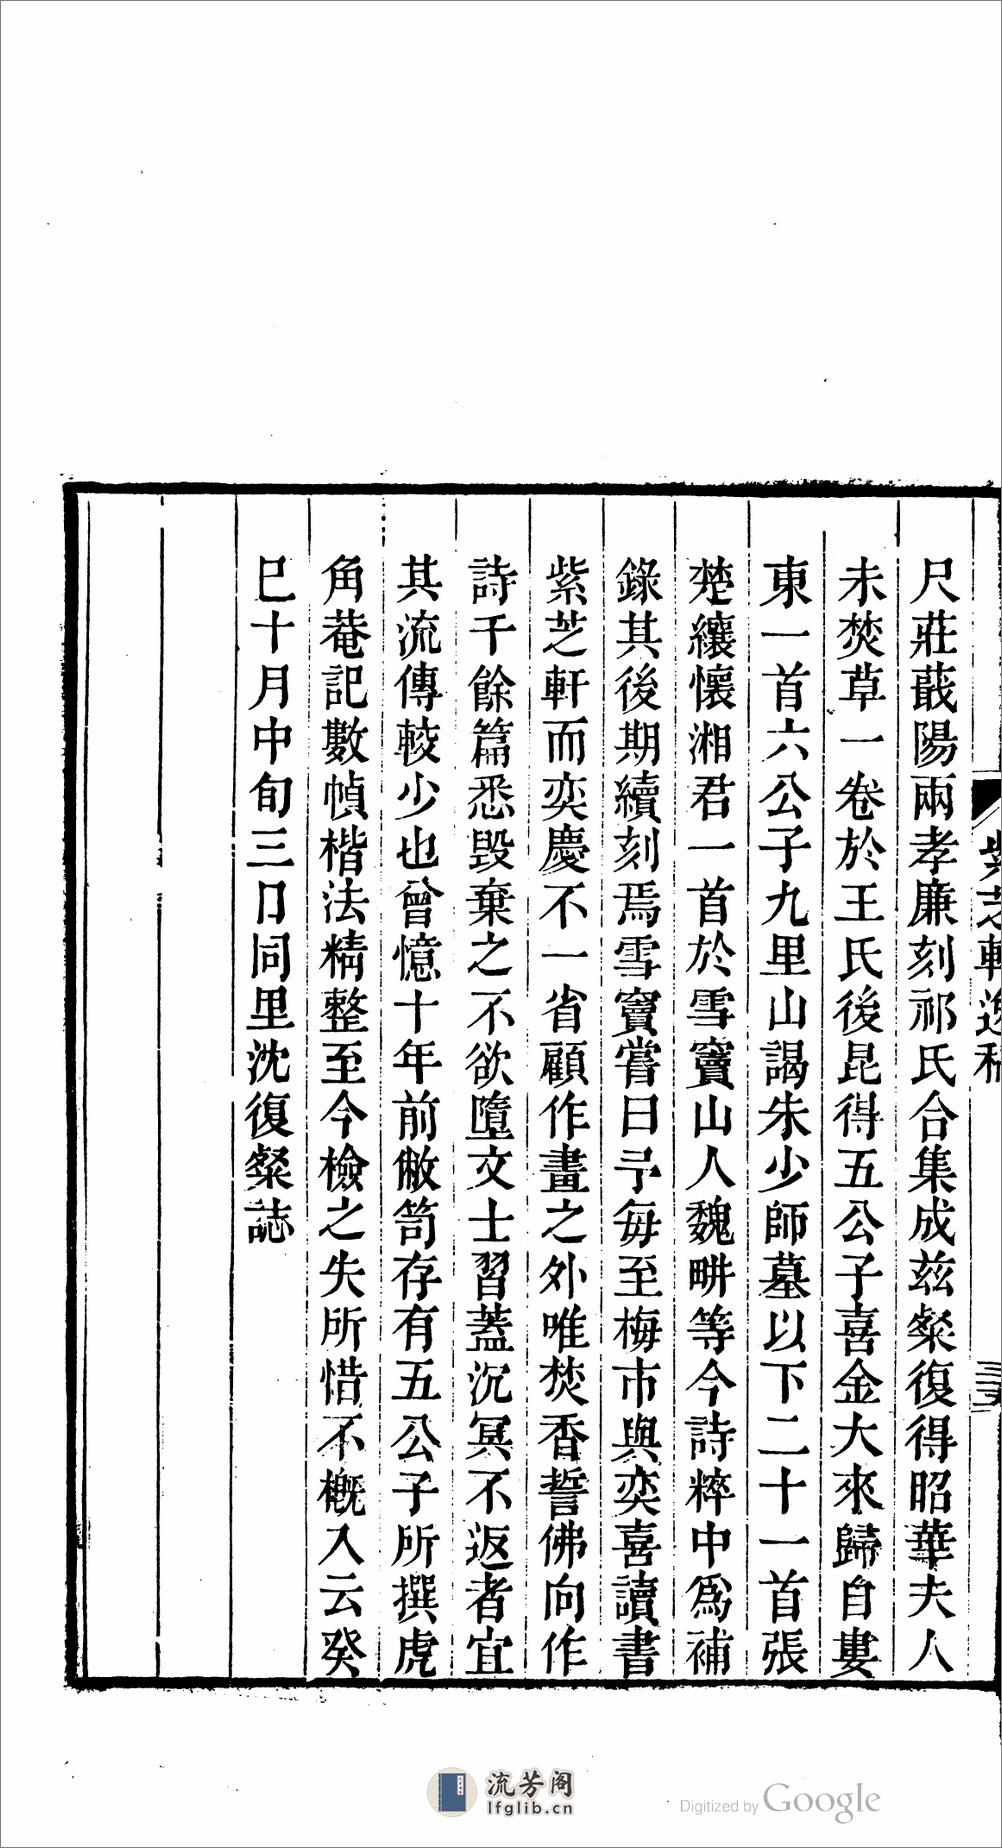 紫芝軒逸稿
尺莊蕺陽兩孝廉刻祁氏合集成茲粲復得昭華夫人
未焚草一卷於王氏後昆得五公子喜金大來歸自婁
東一首六公子九里山謁朱少師墓以下二十一首張
楚纕懷湘君一首於雪竇山人魏畊等今詩粹中爲補
錄其後期續刻焉雪竇嘗曰予每至梅市與奕喜讀書
紫芝軒而奕慶不一省顧作畫之外唯焚香誓佛向作
詩千餘篇悉毀棄之不欲墮文士習蓋沉冥不返者宜
其流傳較少也曾憶十年前敝笥存有五公子所撰虎
角菴記數幀楷法精整至今檢之失所惜不概入云癸
巳十月中旬三日同里沈復粲誌
流芳阁
lfglib.cn
Digitized by Google